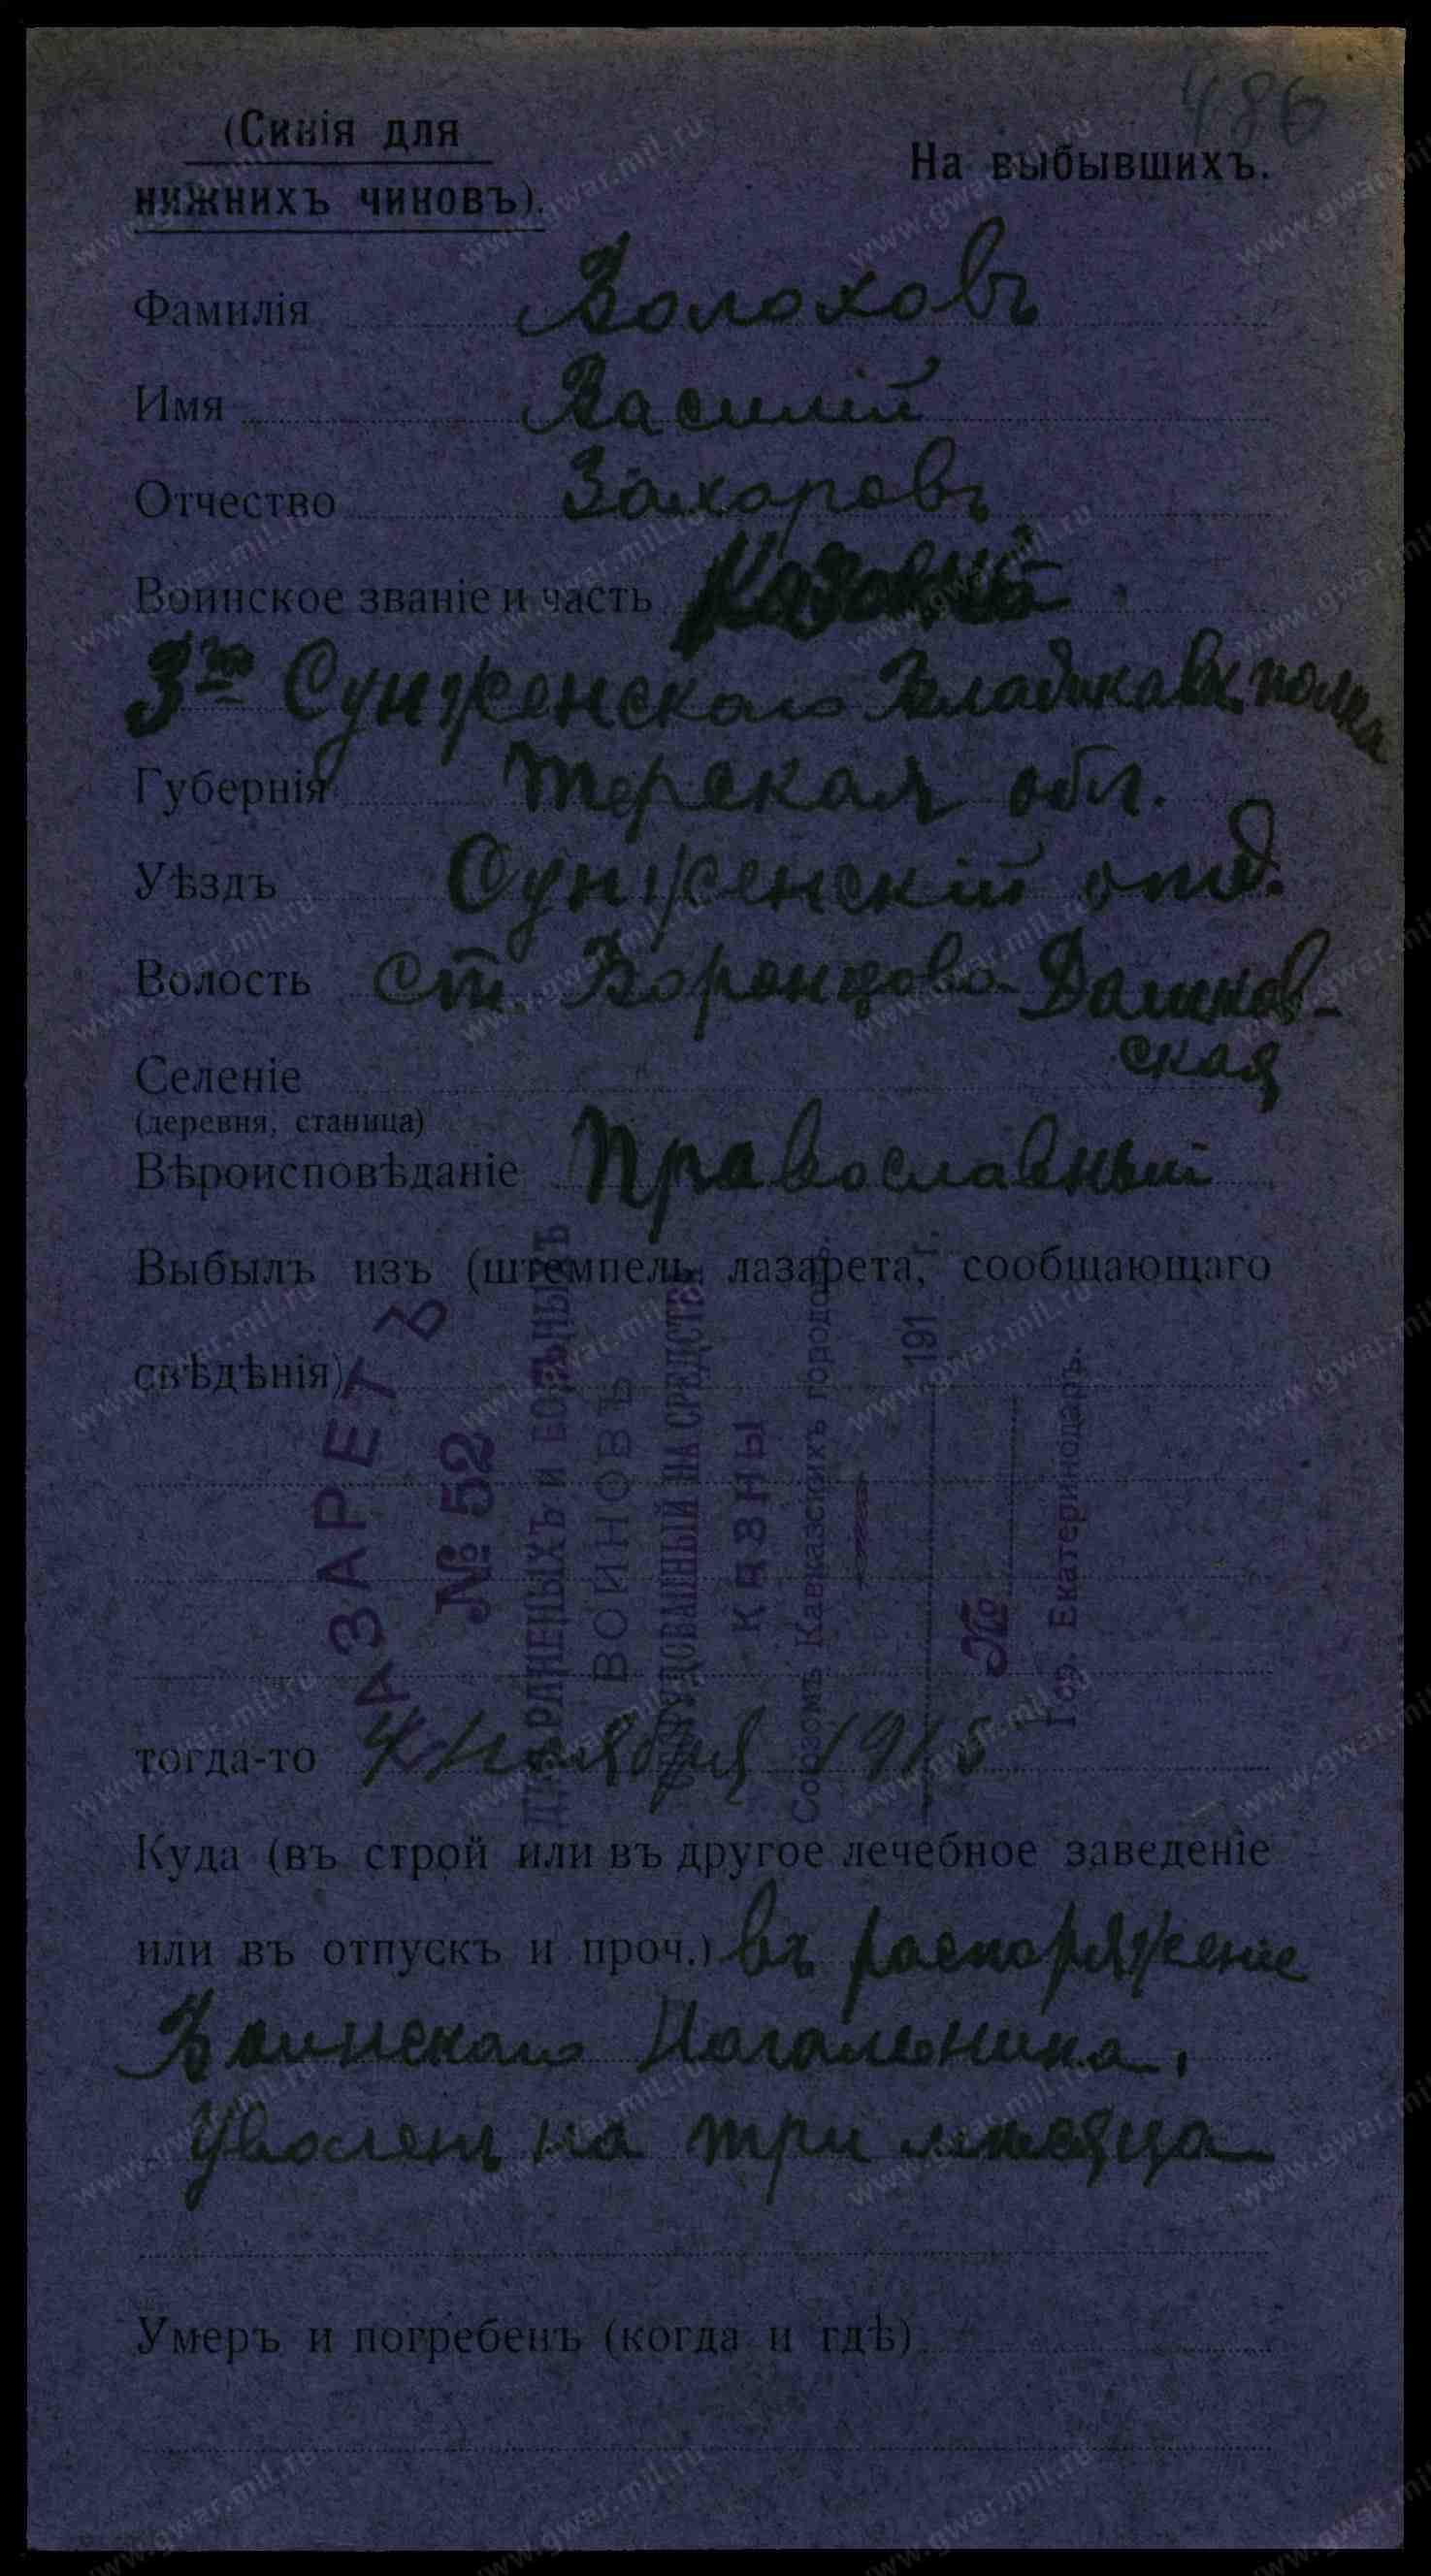 486
(Синія для
нижнихъ чиновъ).
На выбывшихъ.
Фамилія Волоховъ
Имя Василій
Отчество Захаровъ
Воинское званіе и часть Казакъ
3го Сунженского Владикавк полка
Губернія Терская обл.
Уѣздъ Сунженскій отд.
Волость ст Воронцово-Далинов-
ская
Селеніе
(деревня, станица)
Вѣроисповѣданіе Православный
Выбылъ изъ (штемпель лазарета, сообщающаго
свѣдѣнія)
ЛАЗАРЕТЪ
№ 52
ДЛЯ РАНЕНЫХЪ И БОЛЬНЫХЪ
ВОИНОВЪ
ОБОРУДОВАННЫЙ НА СРЕДСТВА
КАЗНЫ
Союзомъ Кавказскихъ городовъ.
191 г.
№
Гор. Екатеринодаръ.
тогда-то 4 ноября 1915
Куда (въ строй или въ другое лечебное заведеніе
или въ отпускъ и проч.) въ распоряжение
Воинскаго Начальника,
Уволен на три месяца
Умеръ и погребенъ (когда и гдѣ)
www.gwar.mil.ru